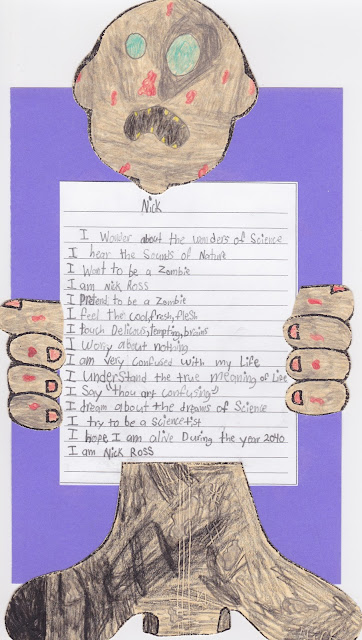 Nick
I Wonder about the wonders of Science
I hear the Sounds of Nature
I Want to be a Zombie
I am Nick Ross
I Pretend to be a Zombie
I feel the cool, fresh, flesh
I touch Delicious, tempting, brains
I Worry about nothing
I am very confused with my Life
I Understand the true meaning of Life
I Say "thou art confusing"
I dream about the dreams of Science
I try to be a Scienctist
I hope I am alive During the year 2040
I am Nick Ross